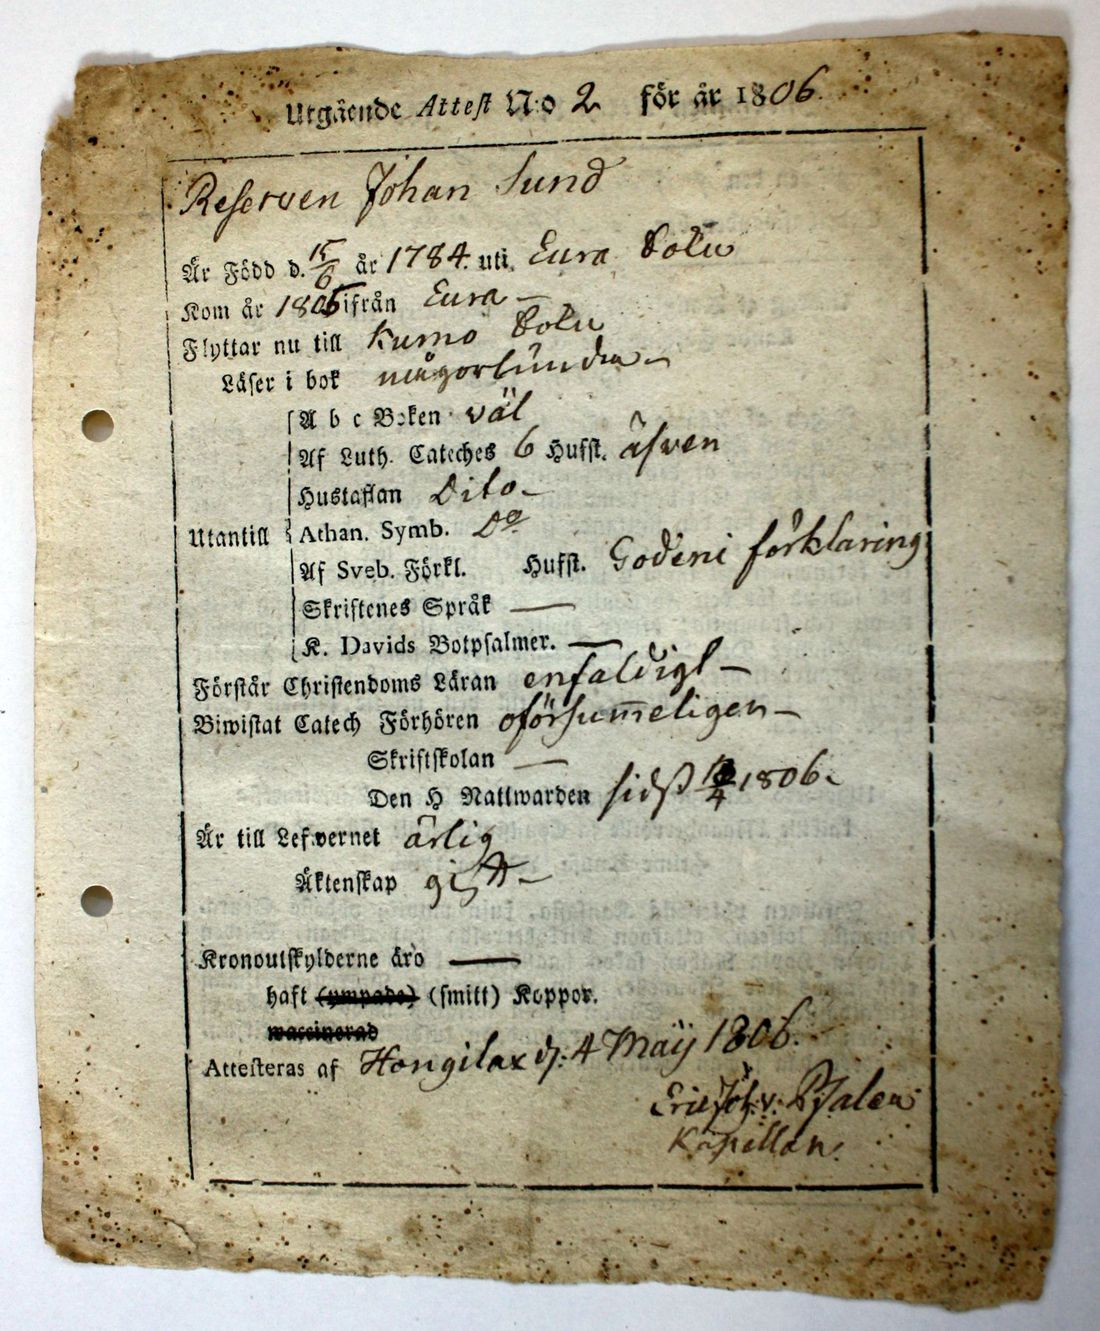 Utgående Attest N:o 2 för år 1806.
Reserven Johan Sund
Är Född d. 15/6 år 1784. uti Eura
Kom år 1805 ifrån Eura —
Flyttar nu till Kumo
Läser i bok någorlunda —
A b c Boken väl
Af Luth. Cateches 6 Hufst. äfven
Hustaflan Dito —
Utantill Athan. Symb. Do
Af Sveb. Förkl. Hufst. förklaring
Skriftenes Språk —
K. Davids Botpsalmer. —
Förstår Christendoms Läran enfaldigt —
Biwistat Catech Förhören oförsum̅eligen —
Skriftskolan —
Den H Nattwarden sidst /4 1806.
Är till Lefwernet ärlig
Äktenskap gift —
Kronoutskylderne äro —
haft (ympade) (smitt) Koppor.
waccinerad
Attesteras af Hongilax d. 4 Maÿ 1806.
Eric Joh.
Kapellan.